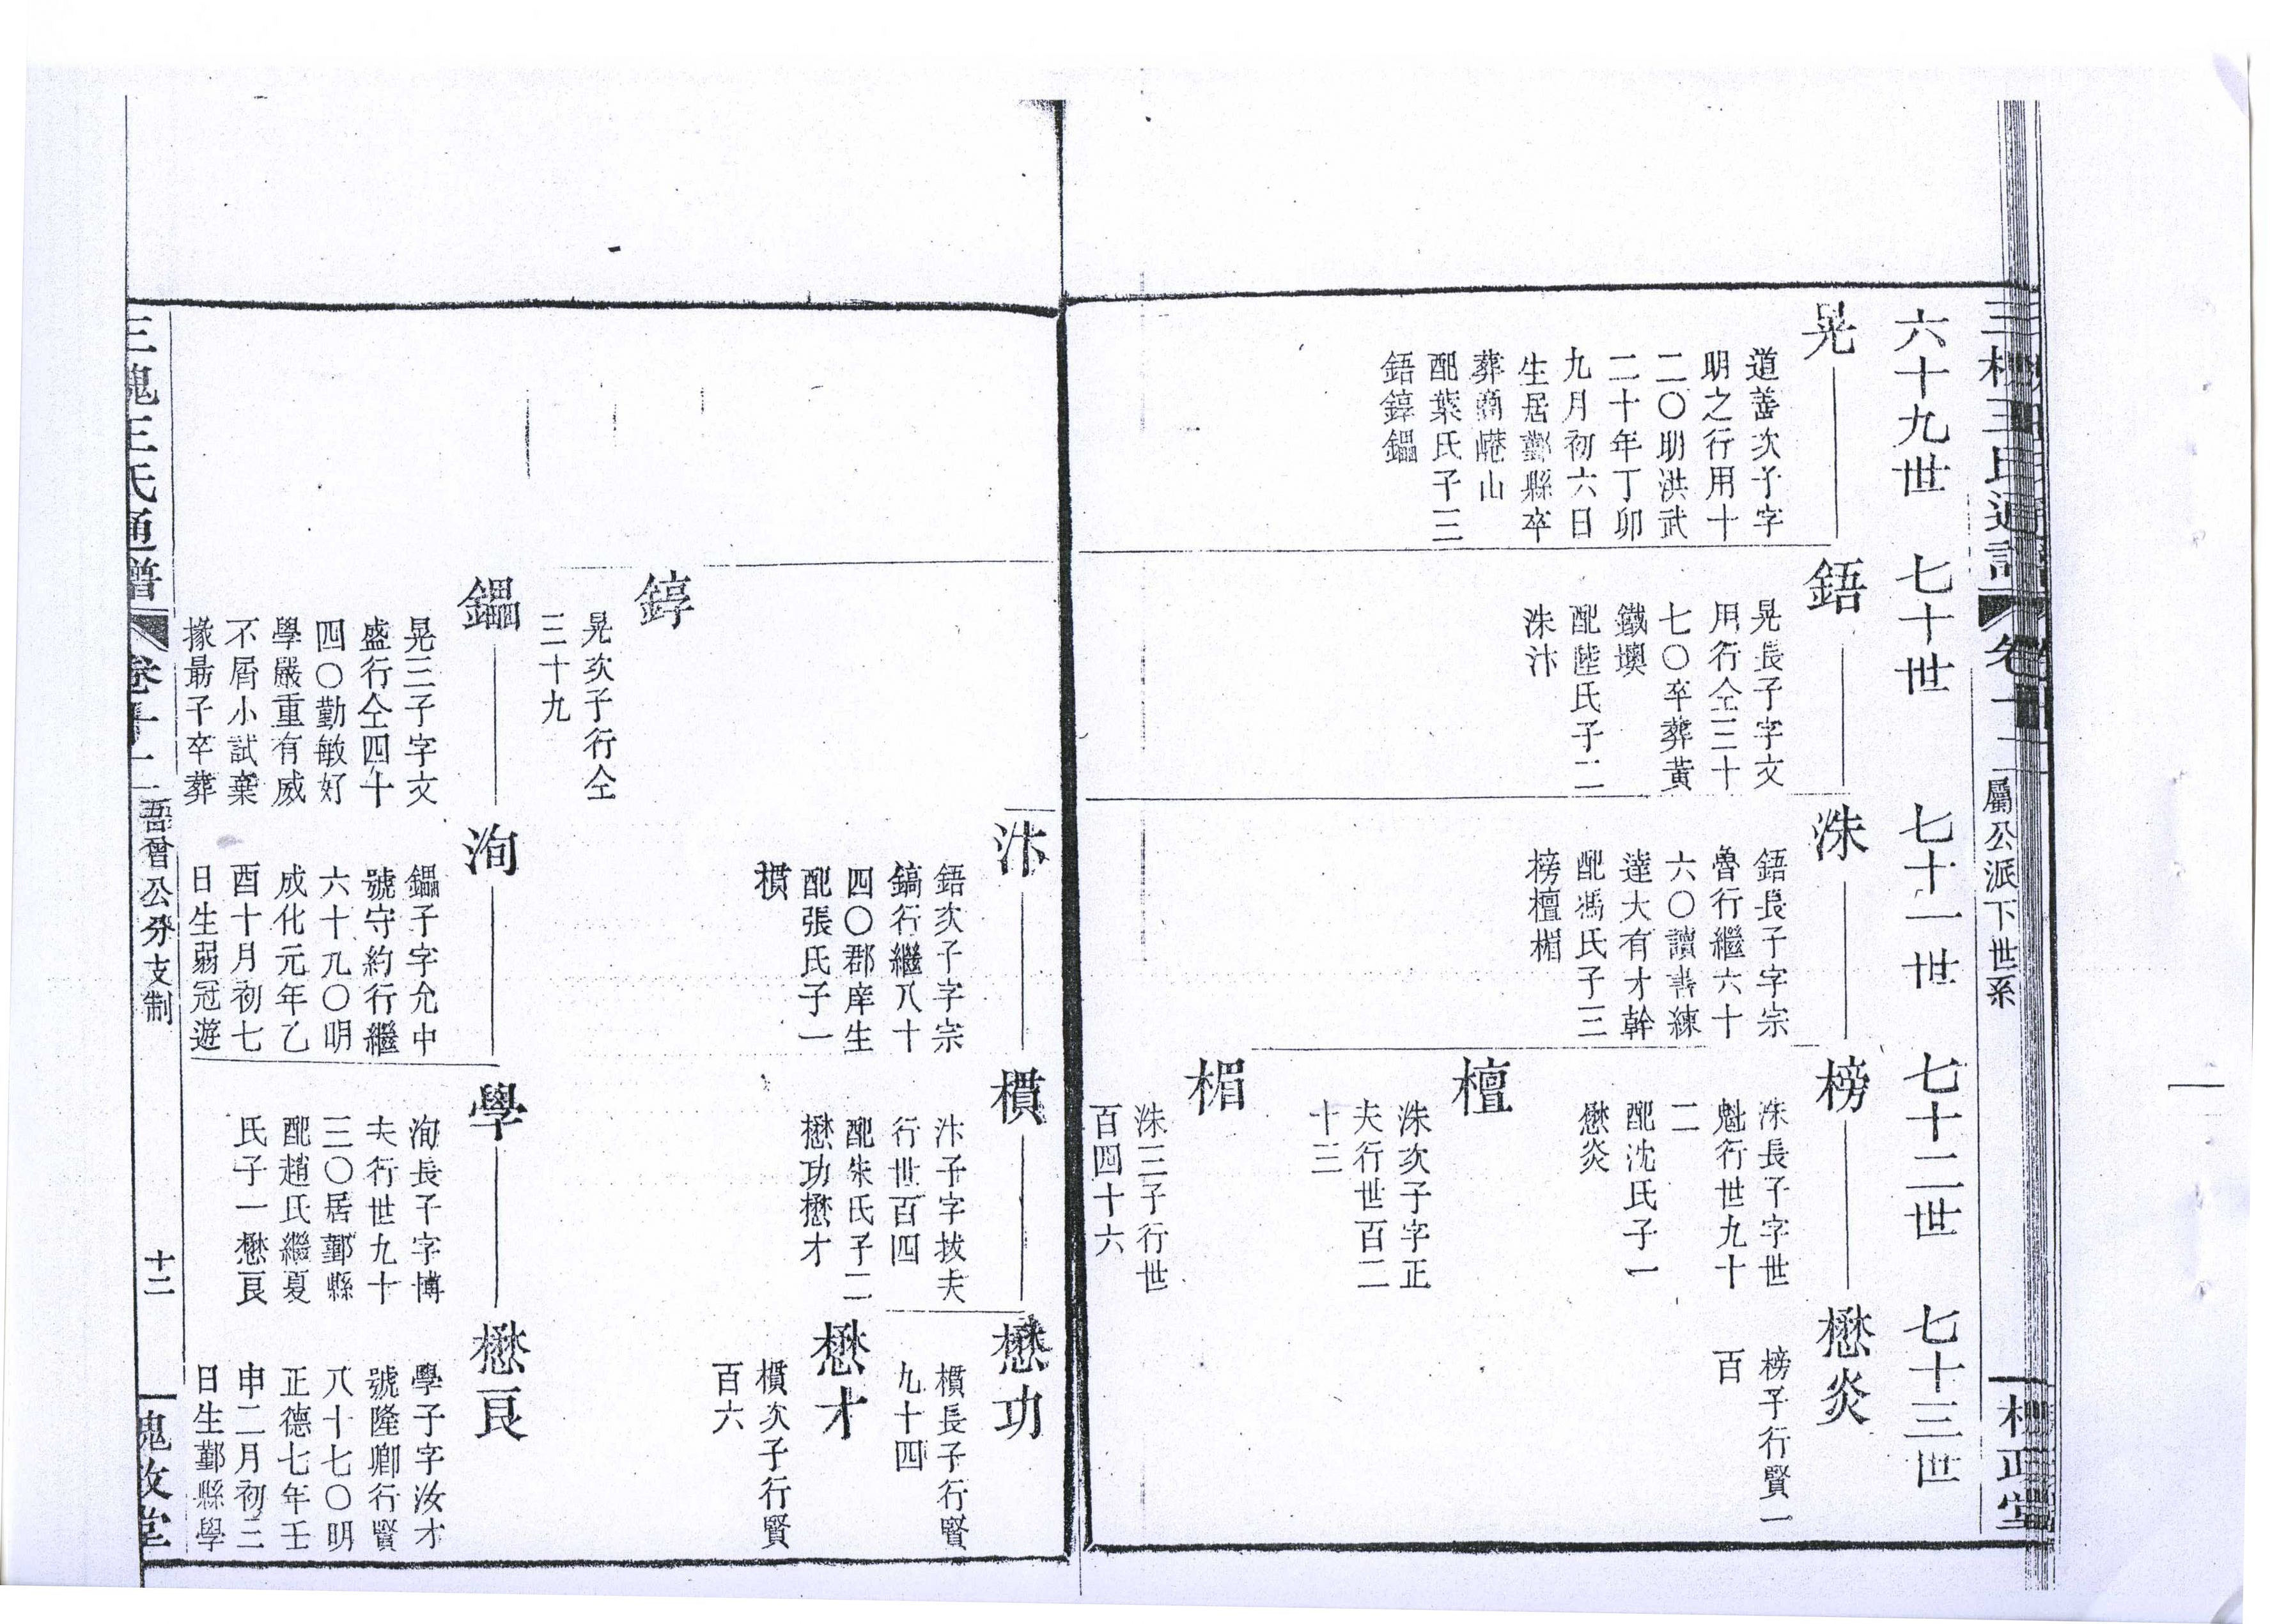 六十九世
七十世
七十一世
七十二世
七十三世
晃
道善次子字
明之行用十
二〇明洪武
二十年丁卯
九月初六日
生居鄞縣卒
葬商嶝山
配葉氏子三
鋙錞鑘
鋙
晃長子字文
用行仝三十
七〇卒葬黃
鐵墺
配陸氏子二
洙汴
洙
鋙長子字宗
魯行繼六十
六〇讀書練
達大有才幹
配馮氏子三
榜檀楣
榜
洙長子字世
魁行世九十
二
配沈氏子一
懋炎
懋炎
榜子行賢一
百
檀
洙次子字正
夫行世百二
十三
楣
洙三子行世
百四十六
屬公派下世系
汴
鋙次子字宗
鎬行繼八十
四〇郡庠生
配張氏子一
樌
樌
汴子字拔夫
行世百四
配朱氏子二
懋功懋才
懋功
樌長子行賢
九十四
懋才
樌次子行賢
百六
錞
晃次子行仝
三十九
鑘
晃三子字文
盛行仝四十
四〇勤敏好
學嚴重有威
不屑小試棄
掾最子卒葬
洵
鑘子字允中
號守約行繼
六十九〇明
成化元年乙
酉十月初七
日生弱冠遊
學
洵長子字博
夫行世九十
三〇居鄞縣
配趙氏繼夏
氏子一懋良
懋良
學子字汝才
號隆卿行賢
八十七〇明
正德七年壬
申二月初三
日生鄞縣學
三槐王氏通譜
卷十一
晉公分支制
十二
槐政堂